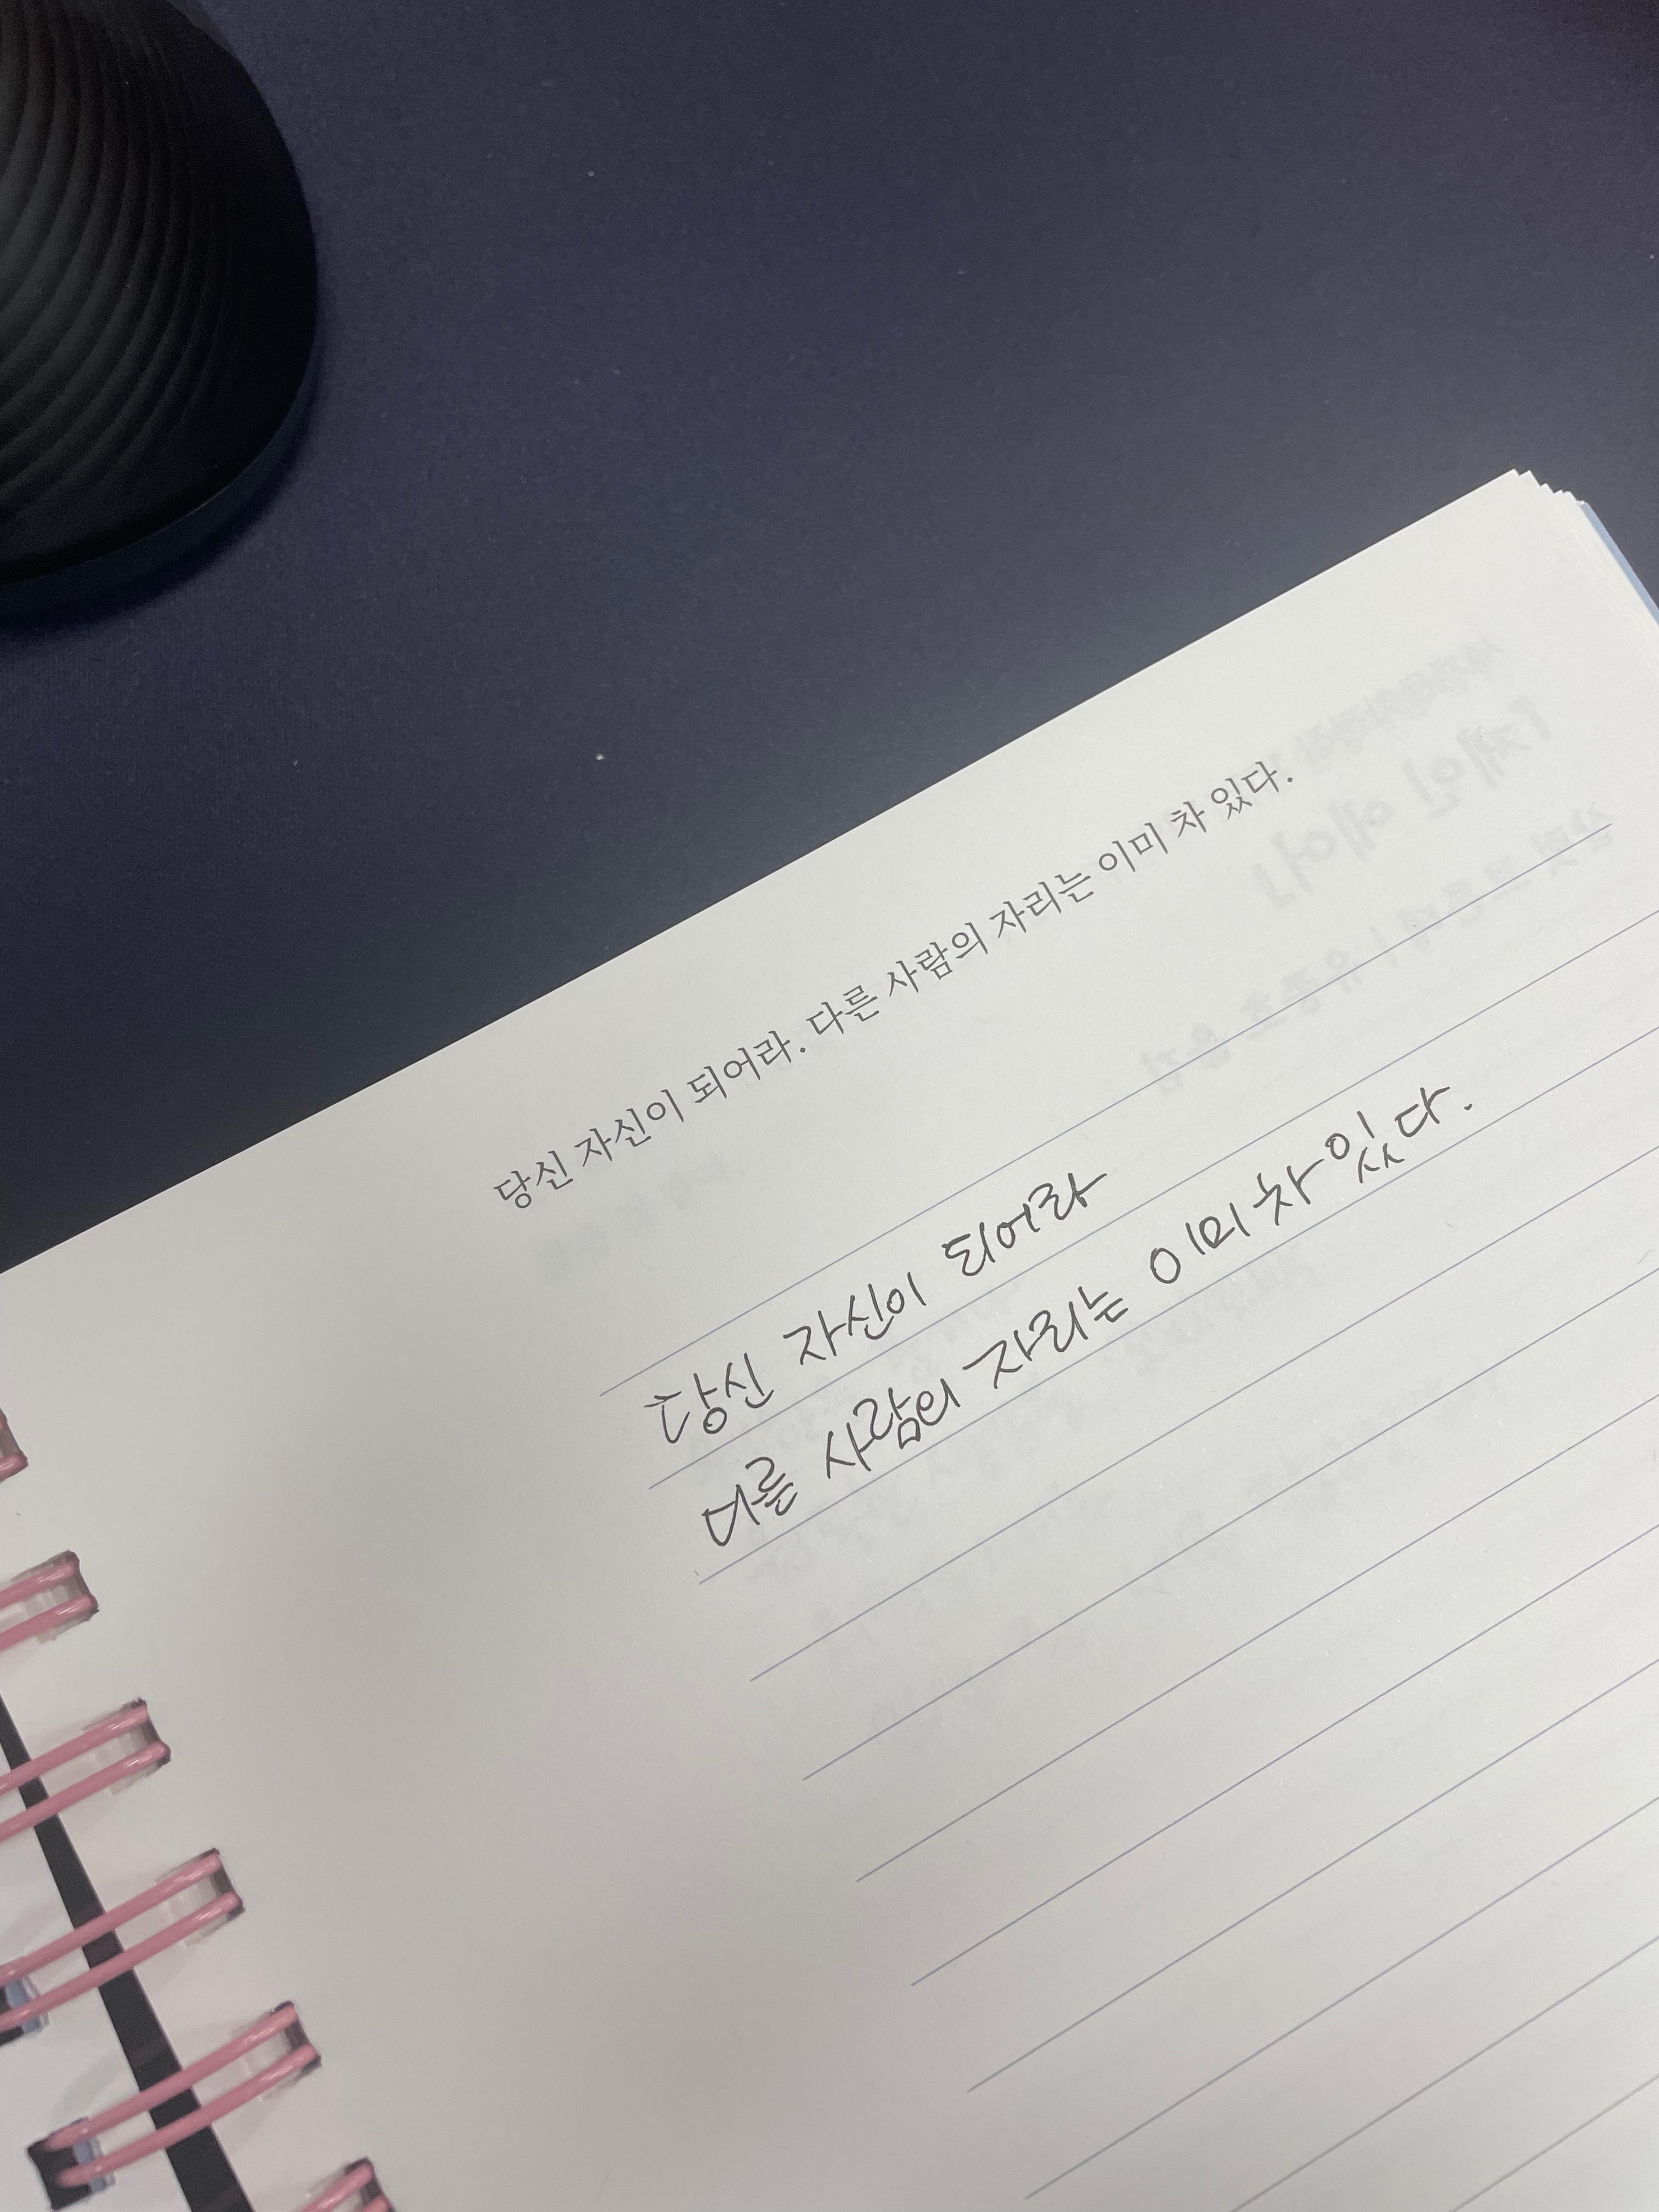 당신 자신이 되어라. 다른 사람의 자리는 이미 차 있다.
당신 자신이 되어라
다른 사람의 자리는 이미 차 있다.